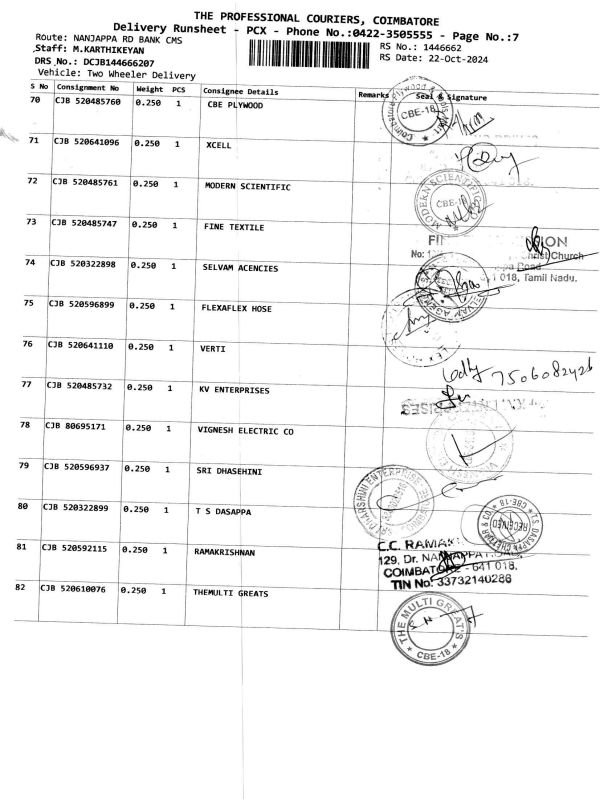 THE PROFESSIONAL COURIERS, COIMBATORE
Delivery Runsheet - PCX - Phone No.:0422-3505555 - Page No.:7
Route: NANJAPPA RD BANK CMS
RS No.: 1446662
Staff: M.KARTHIKEYAN
RS Date: 22-Oct-2024
DRS No.: DCJB144666207
Vehicle: Two Wheeler Delivery
S No Consignment No Weight PCS Consignee Details Remarks Seal & Signature
70 CJB 520485760 0.250 1 CBE PLYWOOD
CBE-18
71 CJB 520641096 0.250 1 XCELL
72 CJB 520485761 0.250 1 MODERN SCIENTIFIC
MODERN SCIENTIFIC
CBE-18
73 CJB 520485747 0.250 1 FINE TEXTILE
No: Christ Church
Road
018, Tamil Nadu.
74 CJB 520322898 0.250 1 SELVAM ACENCIES
75 CJB 520596899 0.250 1 FLEXAFLEX HOSE
76 CJB 520641110 0.250 1 VERTI
7506082426
77 CJB 520485732 0.250 1 KV ENTERPRISES
78 CJB 80695171 0.250 1 VIGNESH ELECTRIC CO
79 CJB 520596937 0.250 1 SRI DHASEHINI
80 CJB 520322899 0.250 1 T S DASAPPA
RECEIVED
CBE-18
81 CJB 520592115 0.250 1 RAMAKRISHNAN
C.C. RAMAK
129, Dr. NANJAPPA ROAD,
COIMBATORE - 641 018.
TIN No: 33732140286
82 CJB 520610076 0.250 1 THEMULTI GREATS
THE MULTI GREAT'S
* CBE-18 *